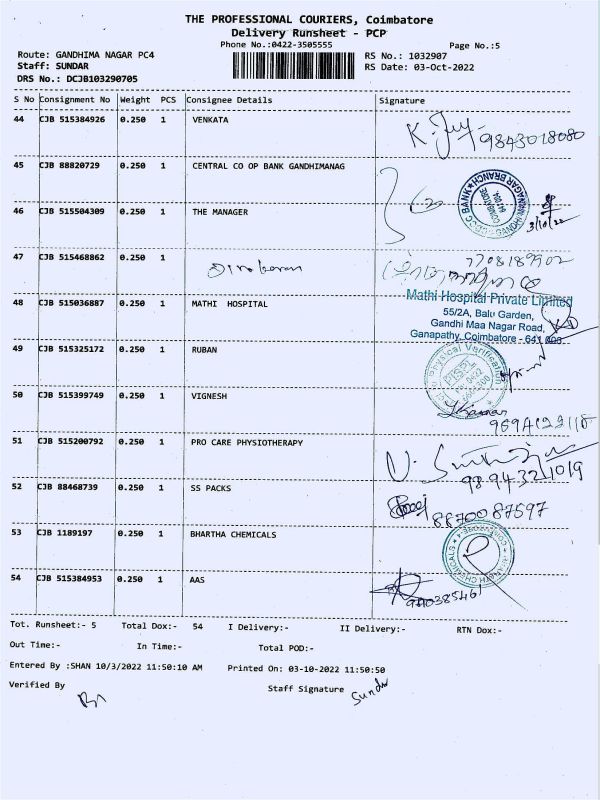 THE PROFESSIONAL COURIERS, Coimbatore
Delivery Runsheet - PCP
Phone No.:0422-3505555
Page No.:5
Route: GANDHIMA NAGAR PC4
RS No.: 1032907
Staff: SUNDAR
RS Date: 03-Oct-2022
DRS No.: DCJB103290705
S No Consignment No Weight PCS Consignee Details Signature
44 CJB 515384926 0.250 1 VENKATA
9843018080
45 CJB 88820729 0.250 1 CENTRAL CO OP BANK GANDHIMANAG
46 CJB 515504309 0.250 1 THE MANAGER
3/10/22
47 CJB 515468862 0.250 1
7708189902
48 CJB 515036887 0.250 1 MATHI HOSPITAL
Mathi Hospital Private Limited
55/2A, Balu Garden,
Gandhi Maa Nagar Road,
Ganapathy, Coimbatore - 641 006
49 CJB 515325172 0.250 1 RUBAN
50 CJB 515399749 0.250 1 VIGNESH
51 CJB 515200792 0.250 1 PRO CARE PHYSIOTHERAPY
98 9432 1019
52 CJB 88468739 0.250 1 SS PACKS
8870087597
53 CJB 1189197 0.250 1 BHARTHA CHEMICALS
54 CJB 515384953 0.250 1 AAS
Tot. Runsheet:- 5 Total Dox:- 54 I Delivery:- II Delivery:- RTN Dox:-
Out Time:- In Time:- Total POD:-
Entered By :SHAN 10/3/2022 11:50:10 AM Printed On: 03-10-2022 11:50:50
Verified By Staff Signature Sundar